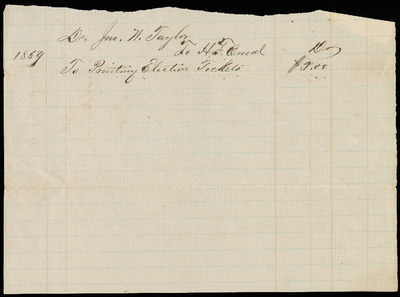 Dr. Jno. W. Taylor
To H. T. Oneal Dr
1859
To Printing Election Tickets $5.00